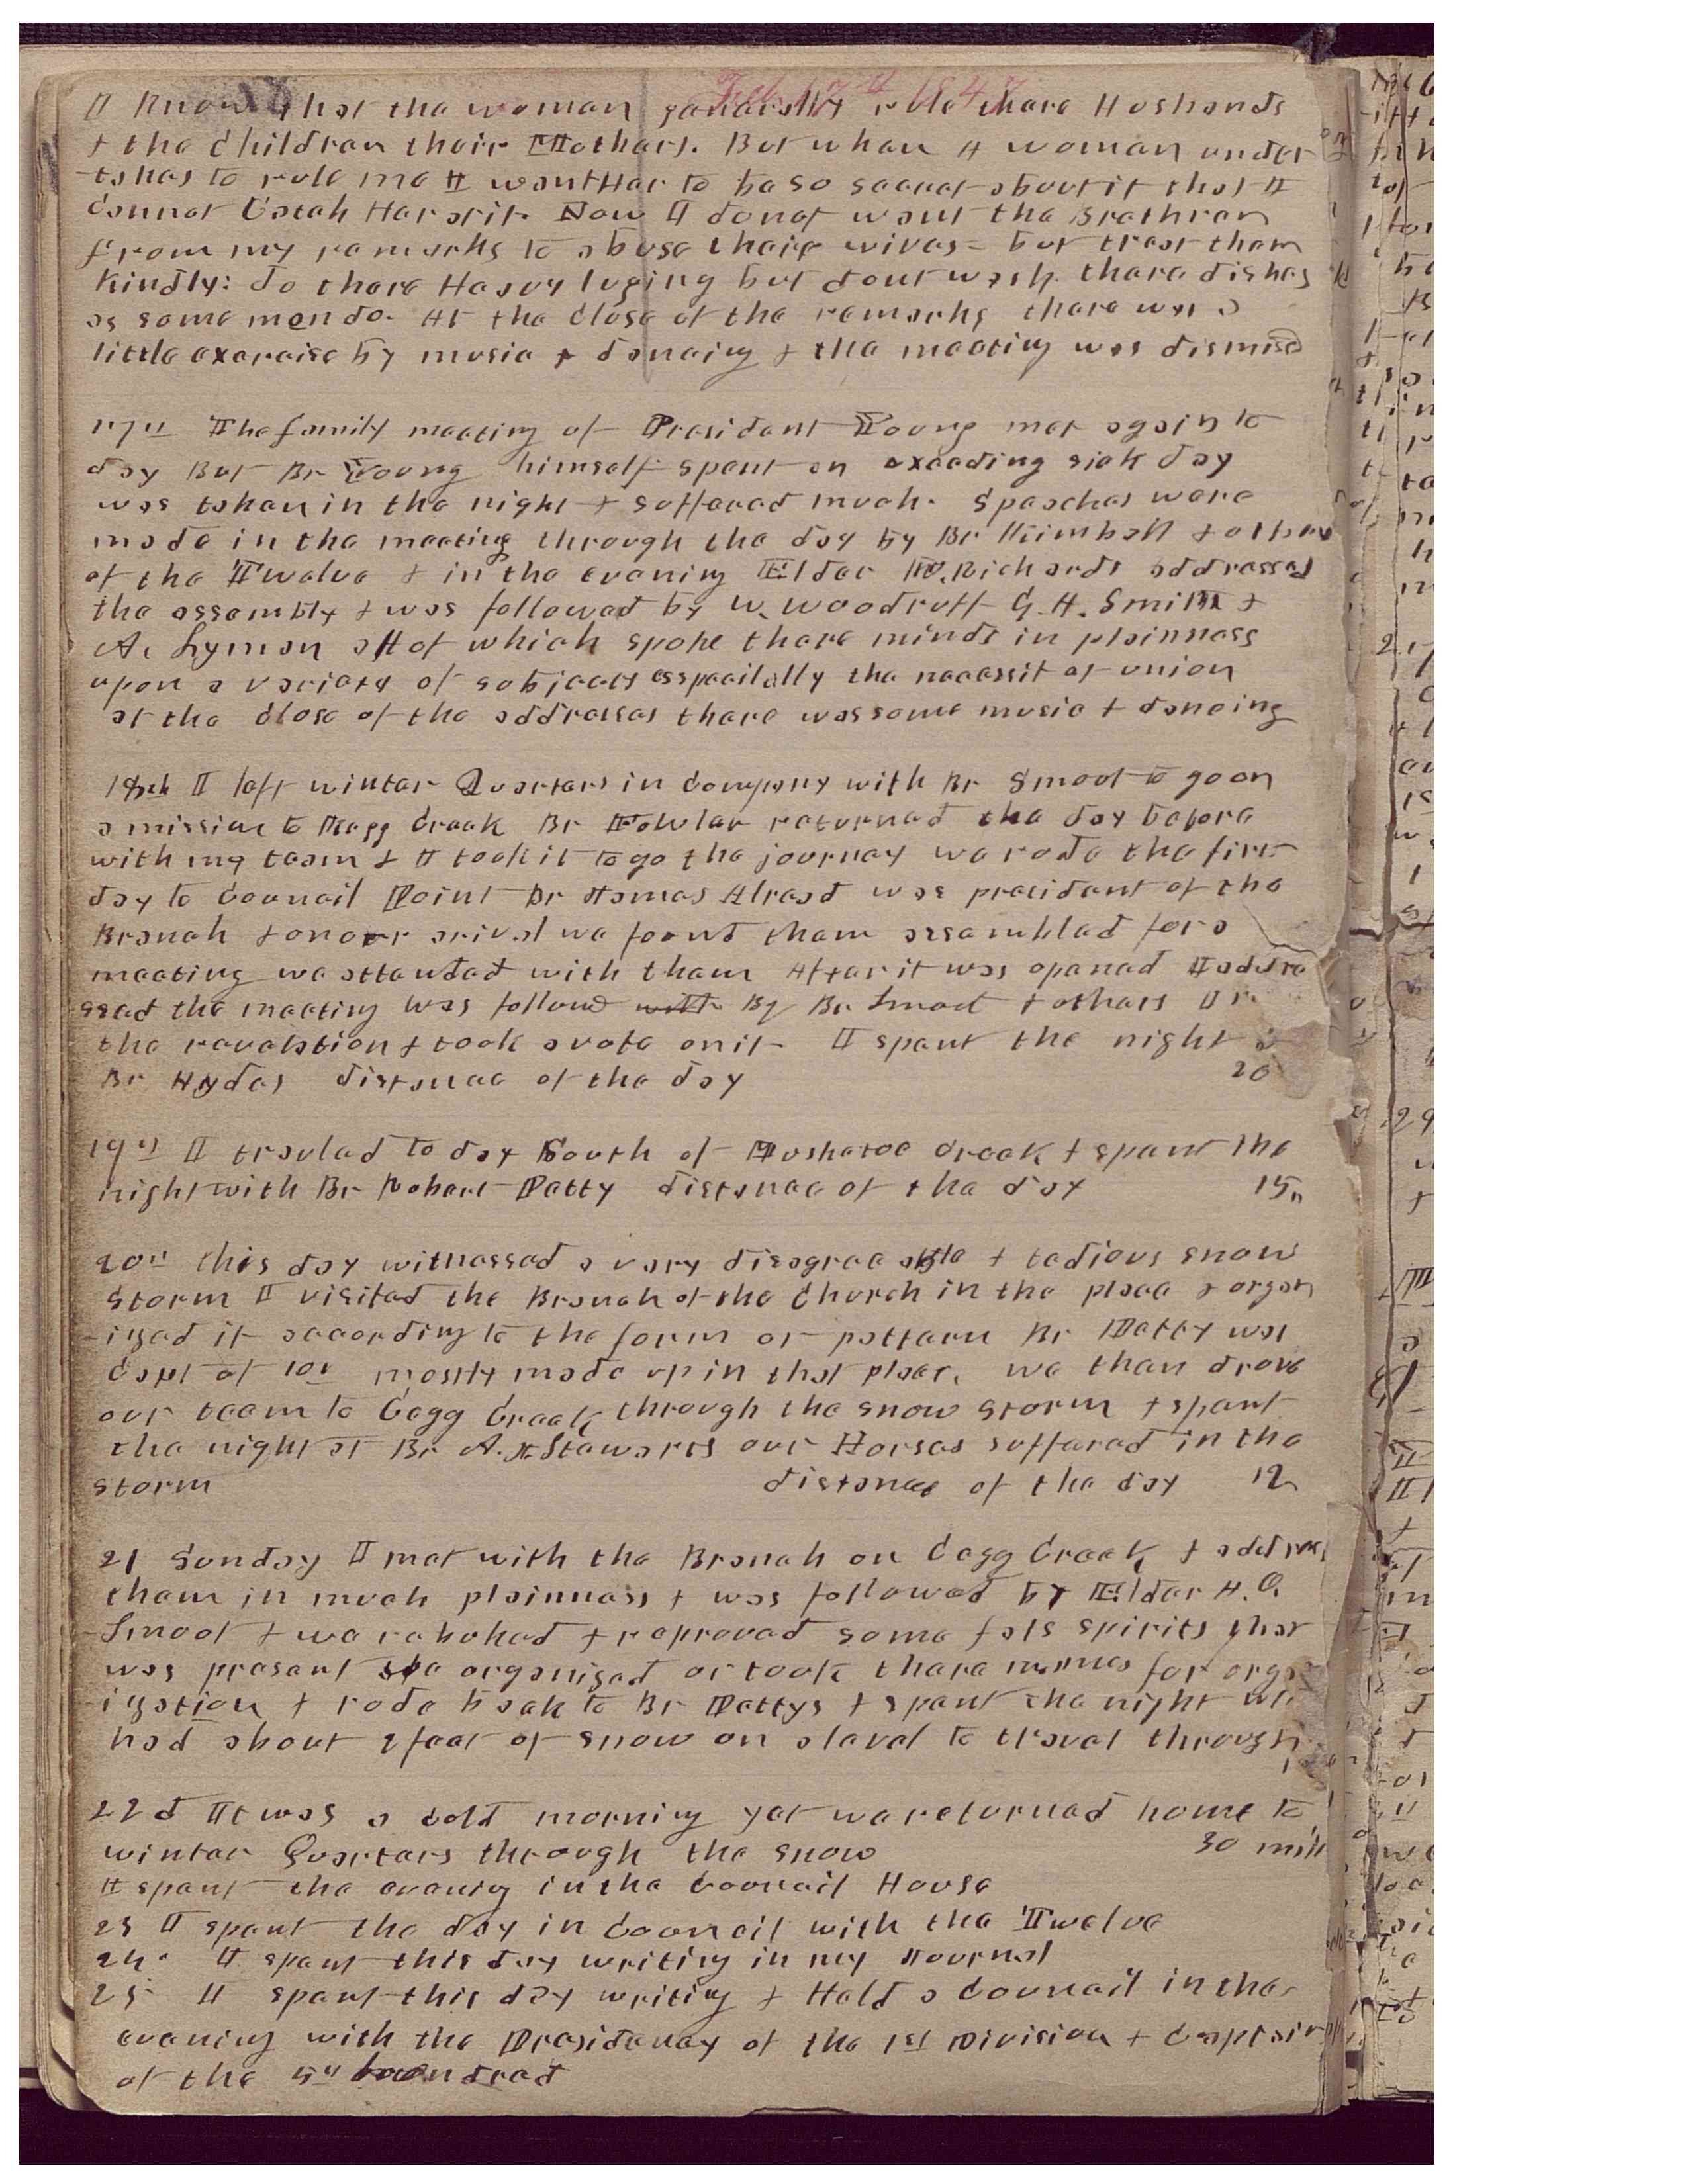 Feb 17th 1847
I know that the woman generally rule there Husbands
& the Children their Mothers. But when A woman under
-takes to rule me I want Her to be so secret about it that I
cannot Catch Her at it. Now I do not want the Brethren
from my remarks to abuse their wives = but treat them
Kindly: do there Heavy luging but dont wash there dishes
as some men do. At the close of the remarks there was a
little exercise by music & dancing & the meeting was dismised
17th The family meeting of President Young met again to
day But Br Young himself spent an exceeding sick day
was taken in the night & suffered much. Speaches were
made in the meeting through the day by Br Kimball & others
of the Twelve & in the evening Elder W. Richards addressed
the assembly & was followed by W. Woodruff G. A. Smith &
A. Lyman all of which spoke there minds in plainness
upon a variety of subjects especially the necessit of union
at the close of the addresses there was some music & dancing
18th I left winter Quarters in company with Br Smoot to go on
a mission to Kegg Creek Br Fowler returned the day before
with my team & I took it to go the journey we rode the first
day to Council Point Br James Alread was president of the
Branch & on our arival we found them assembled for a
meeting we attended with them After it was opened I addre
ssed the meeting was follow with By Br Smoot & others I
the revelation & took a vote on it I spent the night
Br Hydes distance of the day 20
19th I travled to day South of Musketoe creek & spent the
night with Br Robert Petty distance of the day 15 "
20th this day witnessed a very disagreeable & tedious snow
storm I visited the Branch of the Church in the place & organ
-ized it according to the form or pattern Br Petty was
Capt of 10s mostly made up in that place. we than drove
our team to Cegg Creek through the snow storm & spent
the night at Br A. Stewarts our Horses suffered in the
storm distance of the day 12
21 Sunday I met with the Branch on Cegg Creek & addres
them in much plainness & was followed by Elder A. O.
Smoot & we rebuked & reproved some fals spirits that
was present organized or took there names for orga
-ization & rode back to Br Pettys & spent the night we
had about 2 feet of snow on a lavel to travel through
22d It was a cold morning yet we returned home to
winter Quarters through the snow 30 mile
I spent the evening in the Council House
23 I spent the day in Council with the Twelve
24 I spent this day writing in my Journal
25 I spent this day writing & Held a Council in the
evening with the Presidency of the 1st Division & Captain
of the 5th hundred